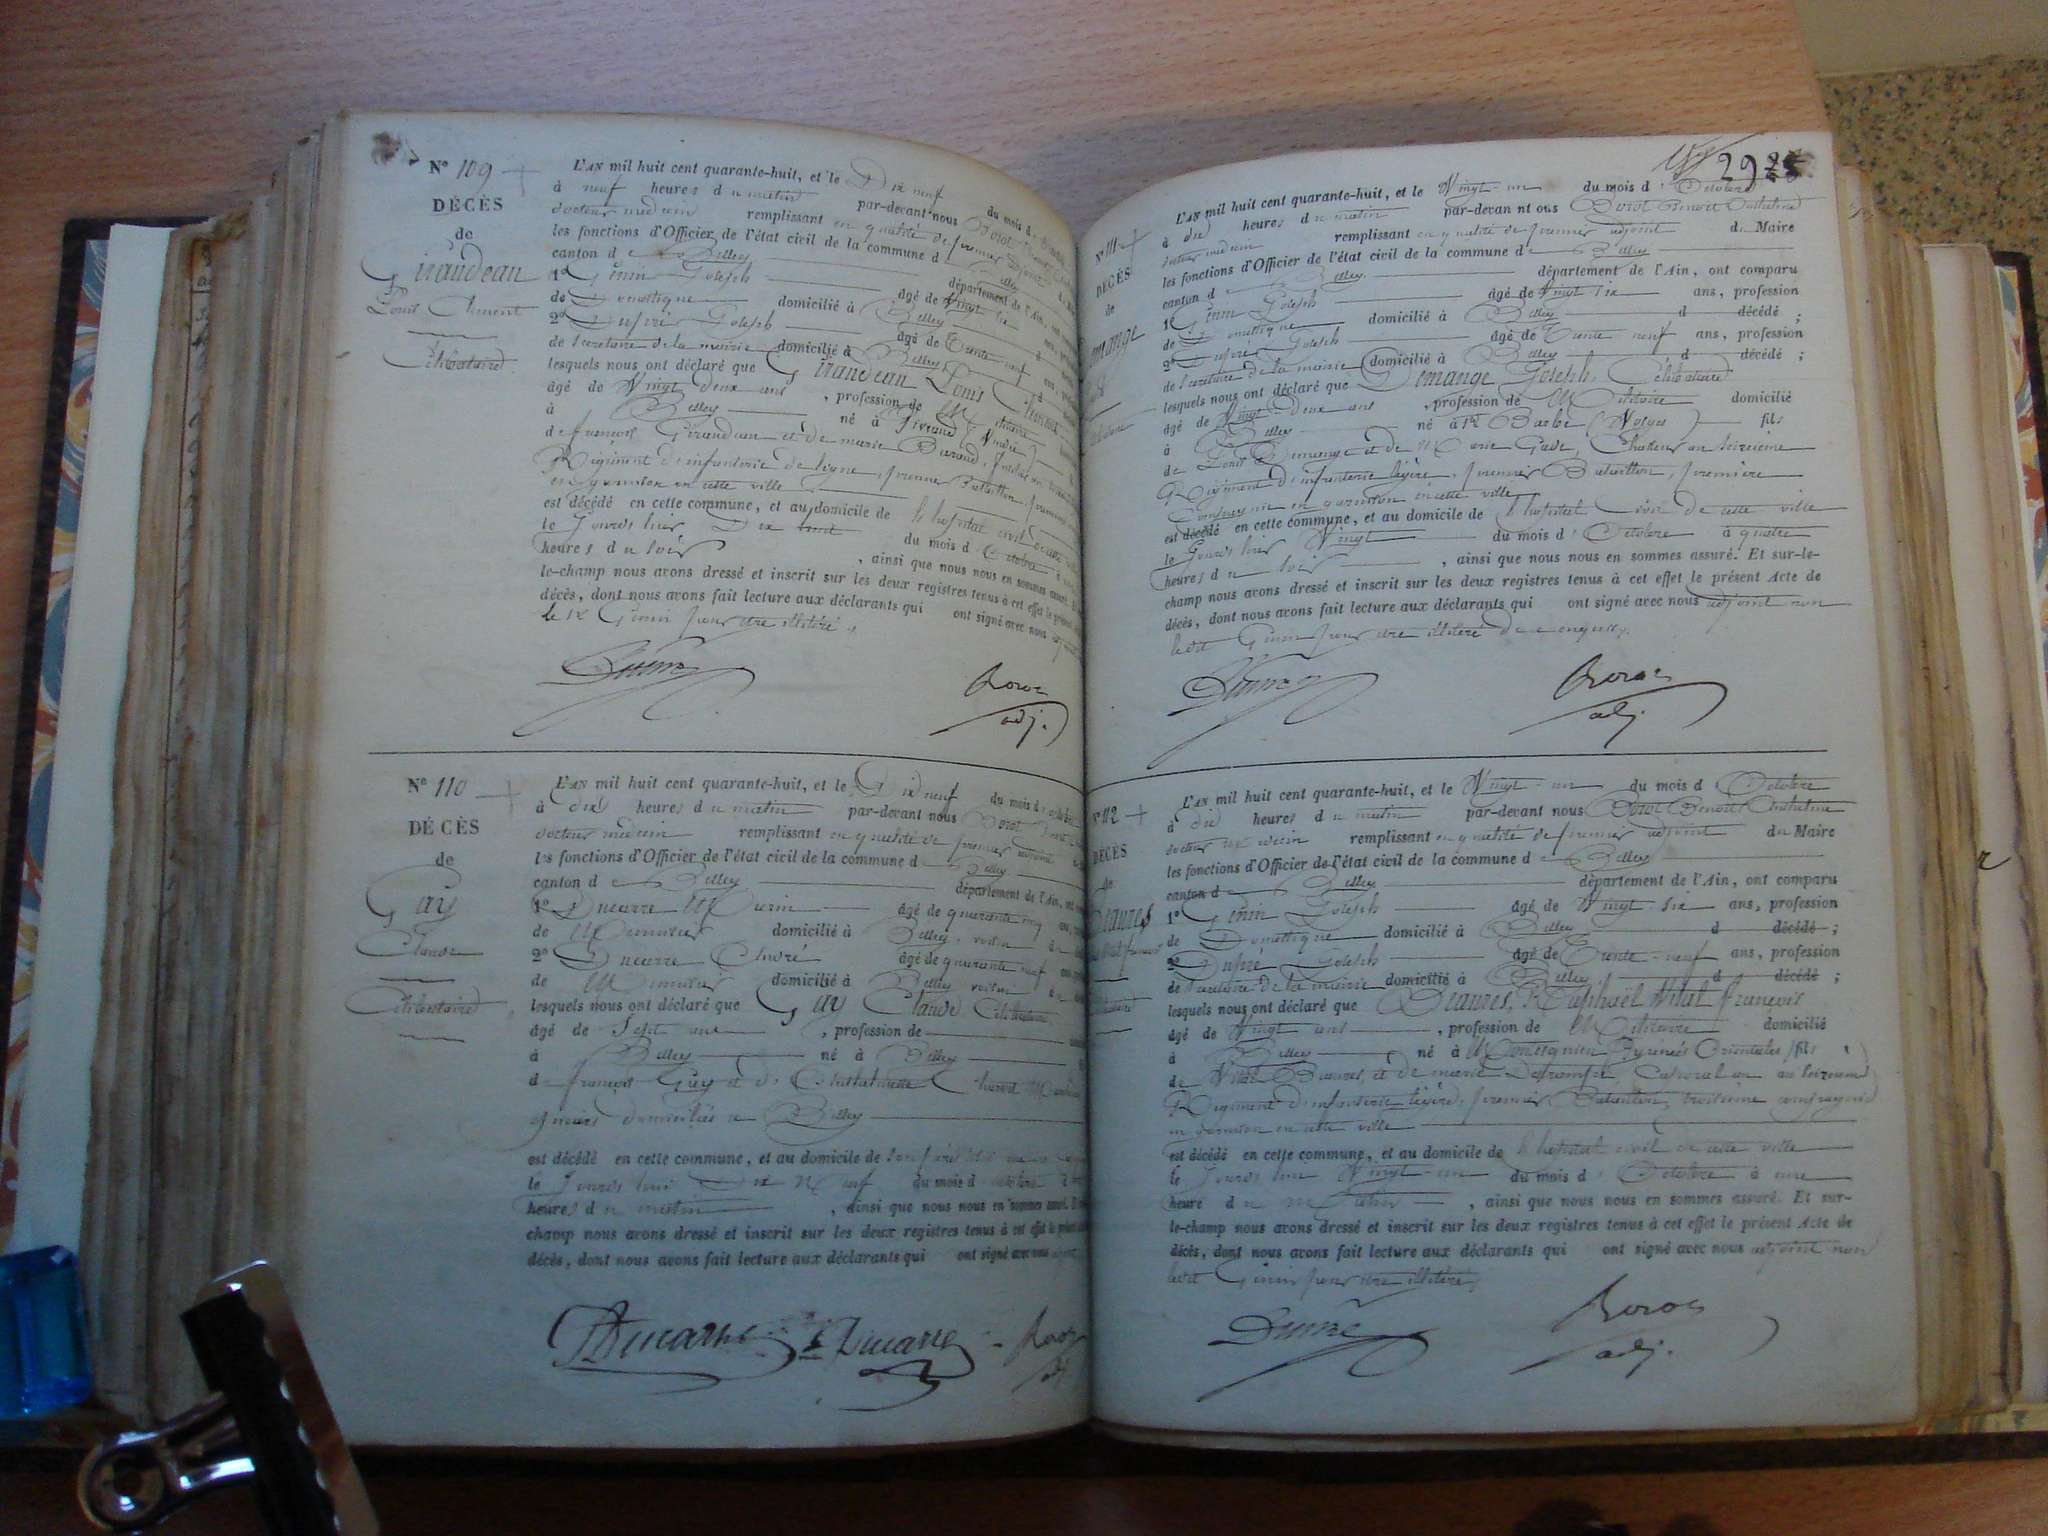 N° 109
DÉCÈS
de
Giraudeau
Louis Clément
Célibataire
L'AN mil huit cent quarante-huit, et le Dix neuf du mois d
à neuf heures du matin par-devant nous
docteur médecin remplissant en qualité de premier adjoint
les fonctions d'Officier de l'état civil de la commune de Belley
canton de Belley département de l'Ain, ont
1° Genin Joseph âgé de Vingt six
de Domestique domicilié à Belley
2° Dupré Joseph âgé de Trente neuf ans,
de Secrétaire de la mairie domicilié à Belley
lesquels nous ont déclaré que Giraudeau Louis Clément
âgé de Vingt deux ans, profession de Militaire
à Belley né à
de françois Giraudeau et de marie Durand,
Régiment d'infanterie de ligne, premier Bataillon,
en garnison en cette ville
est décédé en cette commune, et au domicile de l'hopital civil de cette
le Jourd'hier Dix huit du mois d'Octobre à
heures du soir, ainsi que nous nous en sommes assuré.
le-champ nous avons dressé et inscrit sur les deux registres tenus à cet effet le présent
décès, dont nous avons fait lecture aux déclarants qui ont signé avec nous
Genin pour être illitéré.
Dupré
Borot
adj.
N° 110
DÉCÈS
de
Guy
Claude
Célibataire
L'AN mil huit cent quarante-huit, et le Dix neuf du mois d'octobre
à dix heures du matin par-devant nous Borot
docteur médecin remplissant en qualité de premier adjoint
les fonctions d'Officier de l'état civil de la commune de Belley
canton de Belley département de l'Ain, ont
1° Ducarre âgé de quarante
de domicilié à Belley, voisin
2° Ducarre André âgé de quarante neuf
de domicilié à Belley voisin
lesquels nous ont déclaré que Guy Claude Célibataire
âgé de Sept ans, profession de
à Belley né à Belley
de françois Guy et de
domiciliés à Belley
est décédé en cette commune, et au domicile de son père
le Jourd'hui Dix Neuf du mois d'octobre
heures du matin, ainsi que nous nous en sommes assuré.
champ nous avons dressé et inscrit sur les deux registres tenus à cet effet le présent
décès, dont nous avons fait lecture aux déclarants qui ont signé avec nous
Ducarre Ducarre Borot
adj
292
N° 111
DÉCÈS
de
L'AN mil huit cent quarante-huit, et le Vingt-un du mois d'Octobre
à dix heures du matin par-devant nous Borot Benoit Anthelme
docteur médecin remplissant en qualité de premier adjoint du Maire
les fonctions d'Officier de l'état civil de la commune de Belley
canton de Belley département de l'Ain, ont comparu
1° Genin Joseph âgé de Vingt six ans, profession
de Domestique domicilié à Belley d décédé ;
2° Dupré Joseph âgé de Trente neuf ans, profession
de Secrétaire de la mairie domicilié à Belley d décédé ;
lesquels nous ont déclaré que Demange Joseph, Célibataire
âgé de Vingt-deux ans, profession de Militaire domicilié
à Belley né à Ste Barbe (Vosges) fils
de Louis Demange et de Marie Chasseur au
Régiment d'infanterie légère, premier Bataillon, première
Compagnie en garnison en cette ville
est décédé en cette commune, et au domicile de l'hopital Civil de cette ville
le Jourd'hier Vingt du mois d'Octobre à quatre
heures du soir, ainsi que nous nous en sommes assuré. Et sur-le-
champ nous avons dressé et inscrit sur les deux registres tenus à cet effet le présent Acte de
décès, dont nous avons fait lecture aux déclarants qui ont signé avec nous adjoint non
ledit Genin pour être illitéré de ce enquis.
Dupré
Borot
adj.
N° 112
DÉCÈS
de
L'AN mil huit cent quarante-huit, et le Vingt-un du mois d'Octobre
à dix heures du matin par-devant nous Borot Benoit Anthelme
docteur médecin remplissant en qualité de premier adjoint du Maire
les fonctions d'Officier de l'état civil de la commune de Belley
canton de Belley département de l'Ain, ont comparu
1° Genin Joseph âgé de Vingt-six ans, profession
de Domestique domicilié à Belley d décédé ;
2° Dupré Joseph âgé de Trente-neuf ans, profession
de Secrétaire de la mairie domicilié à Belley d décédé ;
lesquels nous ont déclaré que Raphaël Vital françois
âgé de Vingt ans, profession de Militaire domicilié
à Belley né à Pyrénées Orientales fils
de Vital et de marie Caporal au
Régiment d'infanterie légère, premier Bataillon, troisième compagnie
en garnison en cette ville
est décédé en cette commune, et au domicile de l'hopital civil de cette ville
le Vingt-un du mois d'Octobre à une
heure du matin, ainsi que nous nous en sommes assuré. Et sur-
le-champ nous avons dressé et inscrit sur les deux registres tenus à cet effet le présent Acte de
décès, dont nous avons fait lecture aux déclarants qui ont signé avec nous adjoint non
ledit Genin pour être illitéré,
Dupré
Borot
adj.